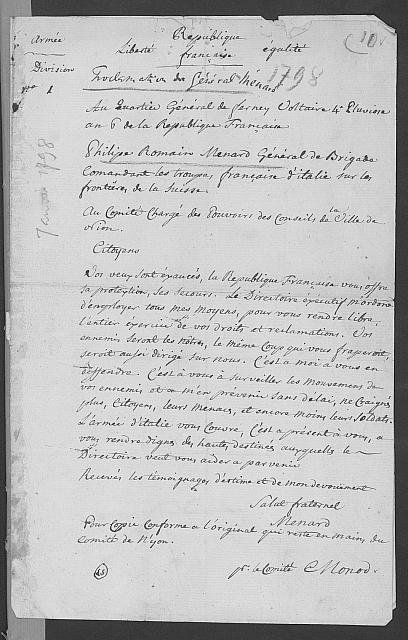 République
Armée
Liberté française égalité
Division
N° 1
Proclamation du Général Ménard
1798
Au Quartier Général de Ferney Voltaire 4e Pluviose
an 6e de la République Française
Philipe Romain Menard Général de Brigade
Comandant les troupes française d'italie sur les
frontières de la Suisse.
Au Comité Chargé des Pouvoirs des Conseils de la Ville de
Nion.
Citoyens
Vos veux sont éxaucés, la République Française vous offre
sa protection, ses secours. Le Directoire exécutif m'ordonne
d'employer tous mes moyens, pour vous rendre libre
l'entier exercice de vos droits et réclamations. Vos
ennemis seront les nôtres, le même Coup qui vous fraperoit,
seroit aussi dirigé sur nous. C'est à moi à vous en
deffendre. C'est à vous à surveiller les mouvemens de
vos ennemis, et à m'en prévenir sans délai, ne Craignés
plus, Citoyens, leurs Menaces, et encore moins leurs Soldats.
L'armée d'italie vous Couvre, C'est a présent à vous, a
vous rendre dignes des hautes destinés auxquelles le
Directoire veut vous aider a parvenir
Recevés les témoignages d'estime et de mon devouement
Salut fraternel
Menard
Pour Copie Conforme a l'original qui reste en mains du
Comité de Nyon.
pr. le Comité C Monod